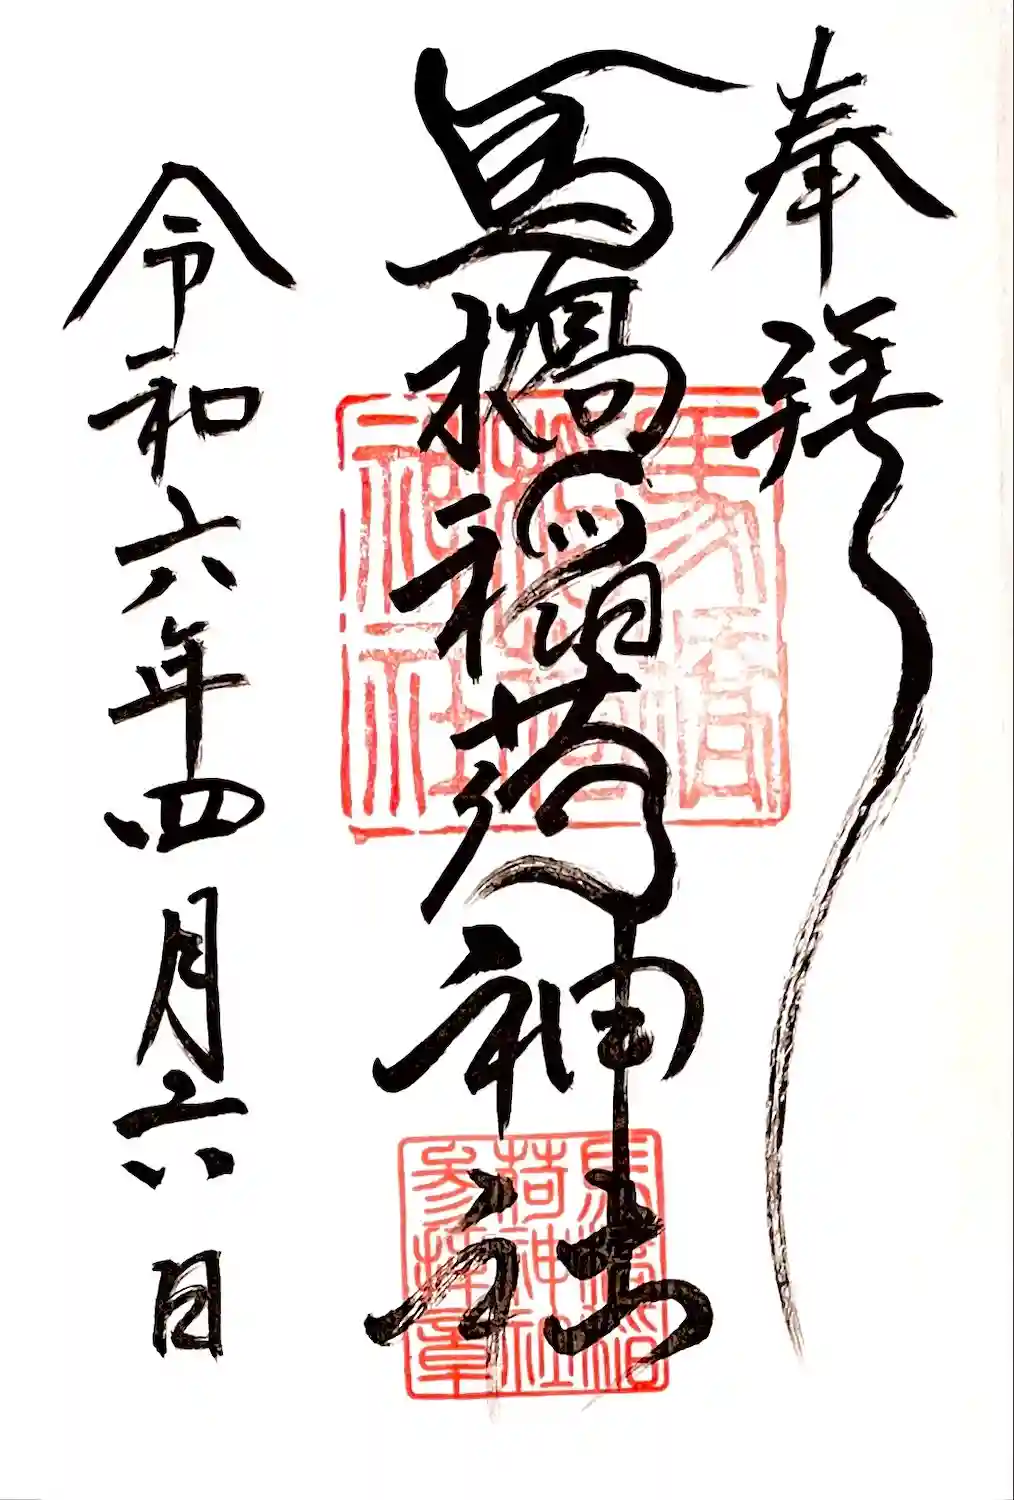 奉拝
馬橋稲荷神社
令和六年四月六日
馬橋稲荷神社
馬橋稲荷神社参拝章